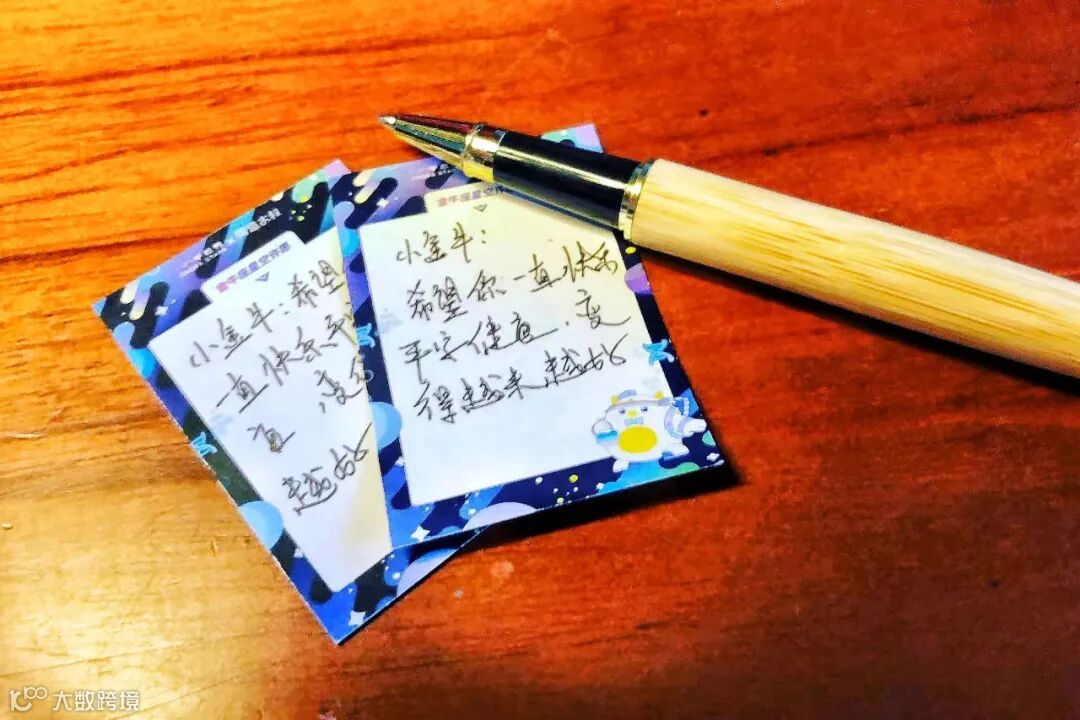 金牛座星空许愿
小金牛：希望
一直快乐平
变
越好
金牛座星空许愿
小金牛：
希望你一直快乐
平安健康，变
得越来越好
大数跨境